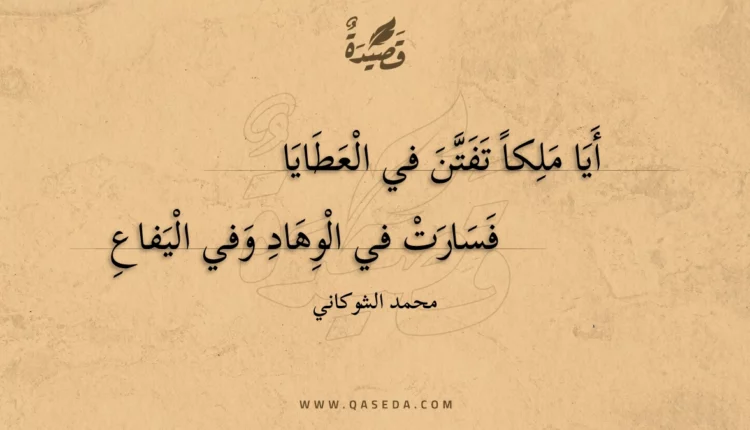 قَصِيدَةٌ
أَيَا مَلِكاً تَفَتَّنَ في الْعَطَايَا
فَسَارَتْ في الْوِهَادِ وَفي الْيَفاعِ
محمد الشوكاني
WWW.QASEDA.COM